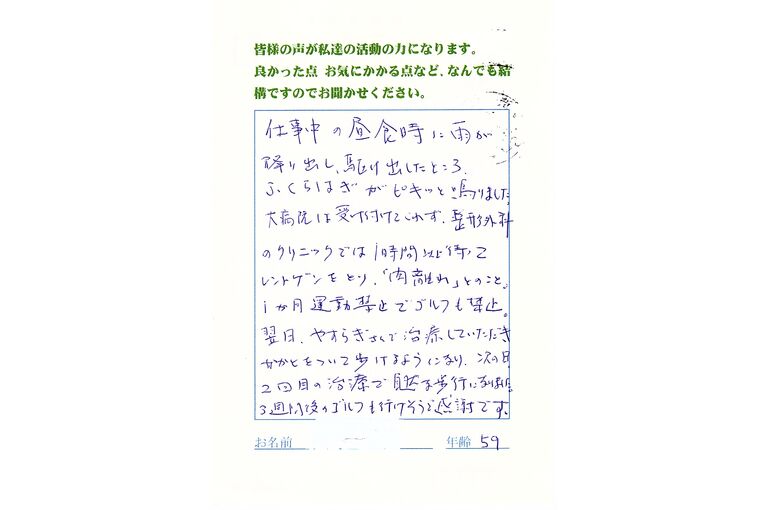 皆様の声が私達の活動の力になります。
良かった点 お気にかかる点など、なんでも結
構ですのでお聞かせください。
仕事中の昼食時に雨が
降り出し、駆け出したところ、
ふくらはぎがピキッと鳴りました。
大病院は受け付けてくれず、整形外科
のクリニックでは1時間以上待って
レントゲンをとり、「肉離れ」とのこと。
1か月運動禁止でゴルフも禁止。
翌日、やすらぎさんで治療していただき
かかとをついて歩けるようになり、次の日
2回目の治療で自然な歩行になりました。
3週間後のゴルフも行けそうで感謝です。
お名前
年齢 59